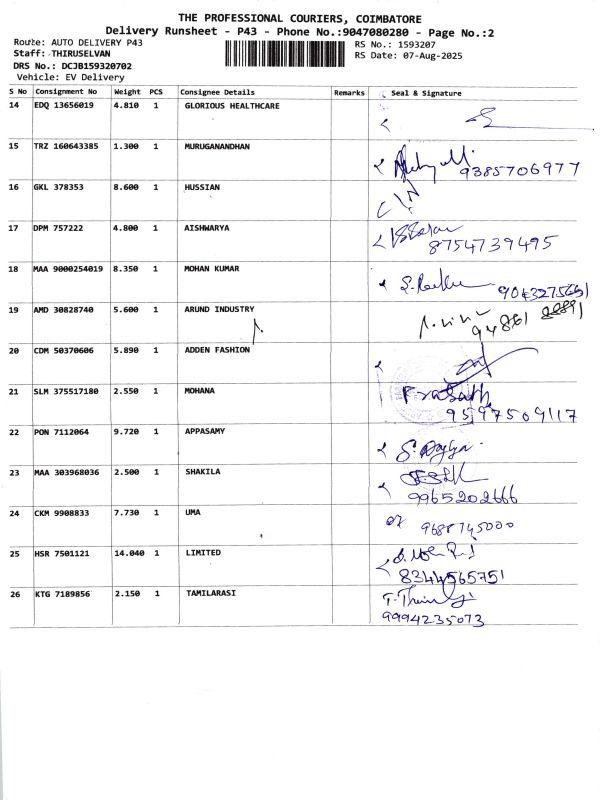 THE PROFESSIONAL COURIERS, COIMBATORE
Delivery Runsheet - P43 - Phone No.:9047080280 - Page No.:2
Route: AUTO DELIVERY P43
RS No.: 1593207
Staff: THIRUSELVAN
RS Date: 07-Aug-2025
DRS No.: DCJB159320702
Vehicle: EV Delivery
S No Consignment No Weight PCS Consignee Details Remarks Seal & Signature
14 EDQ 13656019 4.810 1 GLORIOUS HEALTHCARE
15 TRZ 160643385 1.300 1 MURUGANANDHAN
9385706977
16 GKL 378353 8.600 1 HUSSIAN
17 DPM 757222 4.800 1 AISHWARYA
8754739495
18 MAA 9000254019 8.350 1 MOHAN KUMAR
19 AMD 30828740 5.600 1 ARUND INDUSTRY
20 CDM 50370606 5.890 1 ADDEN FASHION
21 SLM 375517180 2.550 1 MOHANA
Prasath
9597509117
22 PON 7112064 9.720 1 APPASAMY
23 MAA 303968036 2.500 1 SHAKILA
9965202666
24 CKM 9908833 7.730 1 UMA
9688745000
25 HSR 7501121 14.040 1 LIMITED
8344565751
26 KTG 7189856 2.150 1 TAMILARASI
9994235073